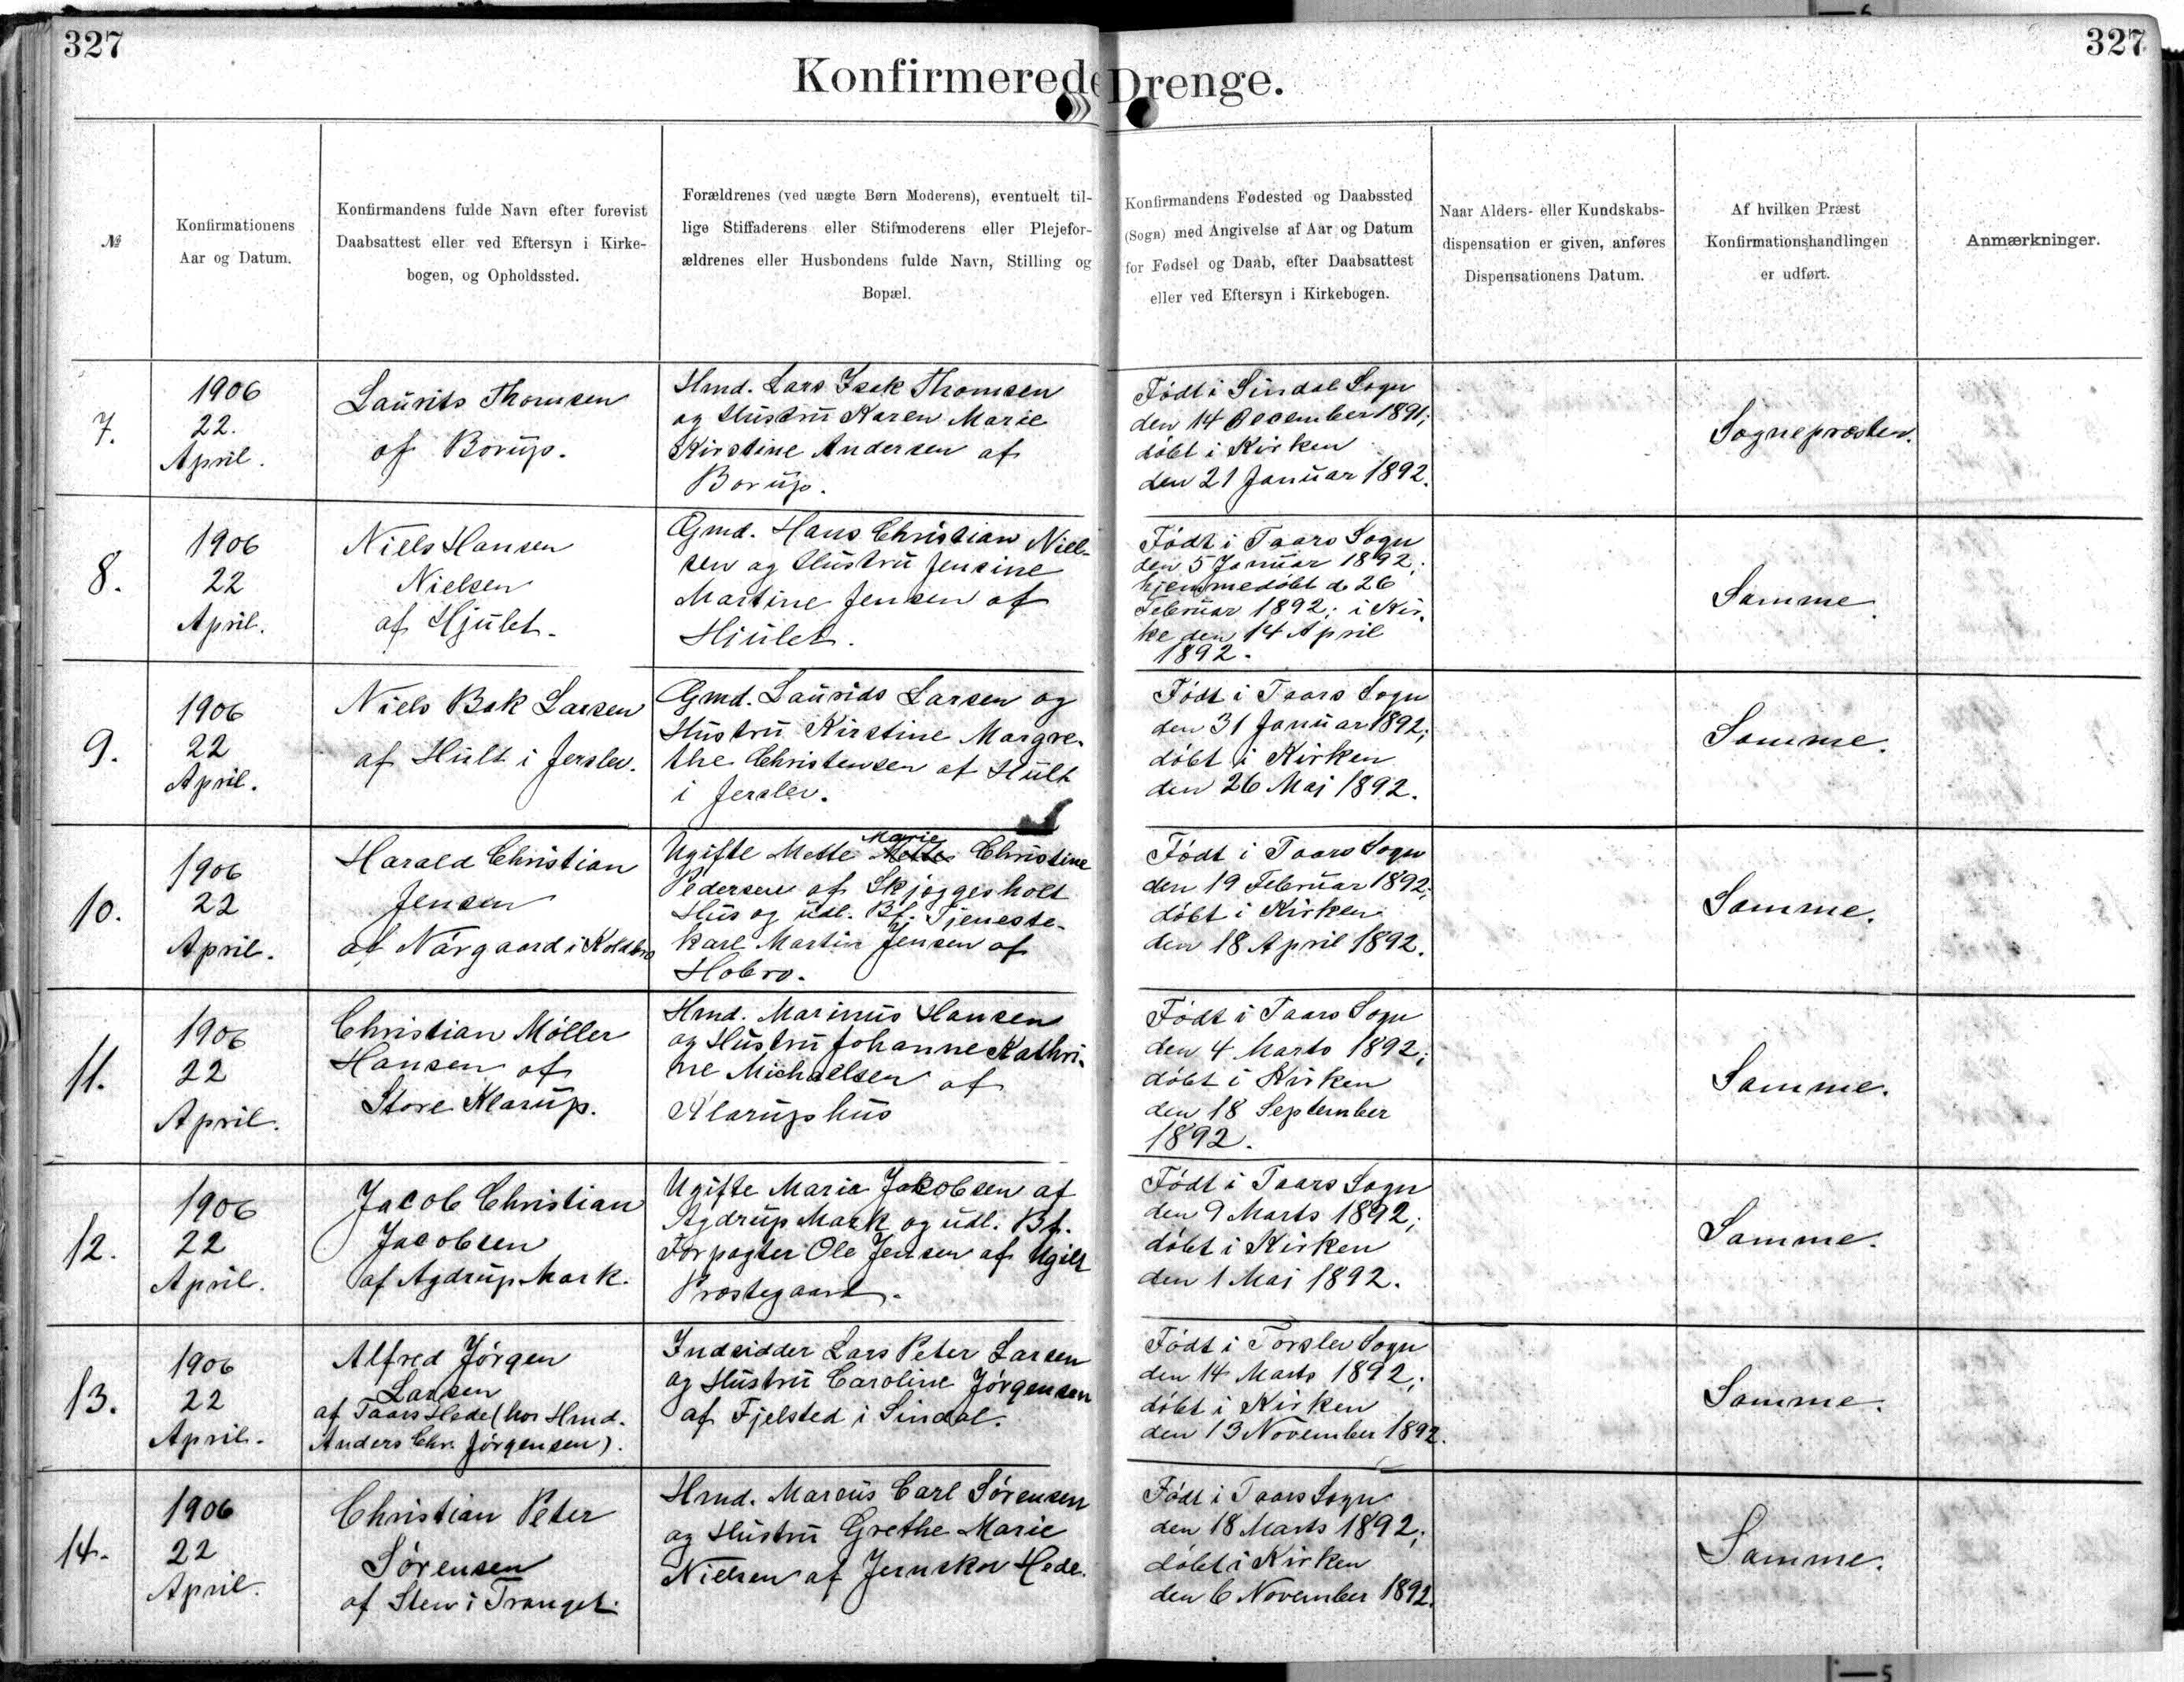 327
327
Konfirmerede Drenge.
№
Konfirmationens
Aar og Datum.
Konfirmandens fulde Navn efter forevist
Daabsattest eller ved Eftersyn i Kirke-
bogen, og Opholdssted.
Forældrenes (ved uægte Børn Moderens), eventuelt til-
lige Stiffaderens eller Stifmoderens eller Plejefor-
ældrenes eller Husbondens fulde Navn, Stilling og
Bopæl.
Konfirmandens Fødested og Daabssted
(Sogn) med Angivelse af Aar og Datum
for Fødsel og Daab, efter Daabsattest
eller ved Eftersyn i Kirkebogen.
Naar Alders- eller Kundskabs-
dispensation er given, anføres
Dispensationens Datum.
Af hvilken Præst
Konfirmationshandlingen
er udført.
Anmærkninger.
7.
1906
22.
April.
Laurits Thomsen
af Borup.
Hmd. Lars Isak Thomsen
og Hustru Karen Marie
Kirstine Andersen af
Borup.
Født i Sindal Sogn
den 14 December 1891;
døbt i Kirken
den 21 Januar 1892.
Sognepræsten.
8.
1906
22
April.
Niels Hansen
Nielsen
af Hjulet.
Gmd. Hans Christian Niel-
sen og Hustru Jensine
Martine Jensen af
Hjulet.
Født i Taars Sogn
den 5 Januar 1892;
hjemmedøbt d. 26
Februar 1892; i Kir-
ke den 14 April
1892.
Samme.
9.
1906
22
April.
Niels Bak Larsen
af Hult i Jerslev.
Gmd. Laurids Larsen og
Hustru Kirstine Margre-
the Christensen af Hult
i Jerslev.
Født i Taars Sogn
den 31 Januar 1892;
døbt i Kirken
den 26 Maj 1892.
Samme.
10.
1906
22
April.
Harald Christian
Jensen
af Nørgaard i Koldbro
Marie
Ugifte Mette Mette Christine
Pedersen af Skjøggesholt
Hus og udl. Bf. Tjeneste-
karl Martin Jensen af
Hobro.
Født i Taars Sogn
den 19 Februar 1892;
døbt i Kirken
den 18 April 1892.
Samme.
11.
1906
22
April.
Christian Møller
Hansen af
Store Klarup.
Hmd. Marinus Hansen
og Hustru Johanne Kathri-
ne Michaelsen af
Klarupshus
Født i Taars Sogn
den 4 Marts 1892;
døbt i Kirken
den 18 September
1892.
Samme.
12.
1906
22
April.
Jacob Christian
Jacobsen
af Agdrup Mark.
Ugifte Marie Jakobsen af
Agdrup Mark og udl. Bf.
Forpagter Ole Jensen af Ugilt
Præstegaard.
Født i Taars Sogn
den 9 Marts 1892;
døbt i Kirken
den 1 Mai 1892.
Samme.
13.
1906
22
April.
Alfred Jørgen
Larsen
af Taars Hede (hos Hmd.
Anders Chr. Jørgensen).
Indsidder Lars Peter Larsen
og Hustru Caroline Jørgensen
af Fjelsted i Sindal.
Født i Torslev Sogn
den 14 Marts 1892;
døbt i Kirken
den 13 November 1892.
Samme.
14.
1906
22
April.
Christian Peter
Sørensen
af Sten i Tranget.
Hmd. Marcus Carl Sørensen
og Hustru Grethe Marie
Nielsen af Jernskov Hede.
Født i Taars Sogn
den 18 Marts 1892;
døbt i Kirken
den 6 November 1892.
Samme.
6
5